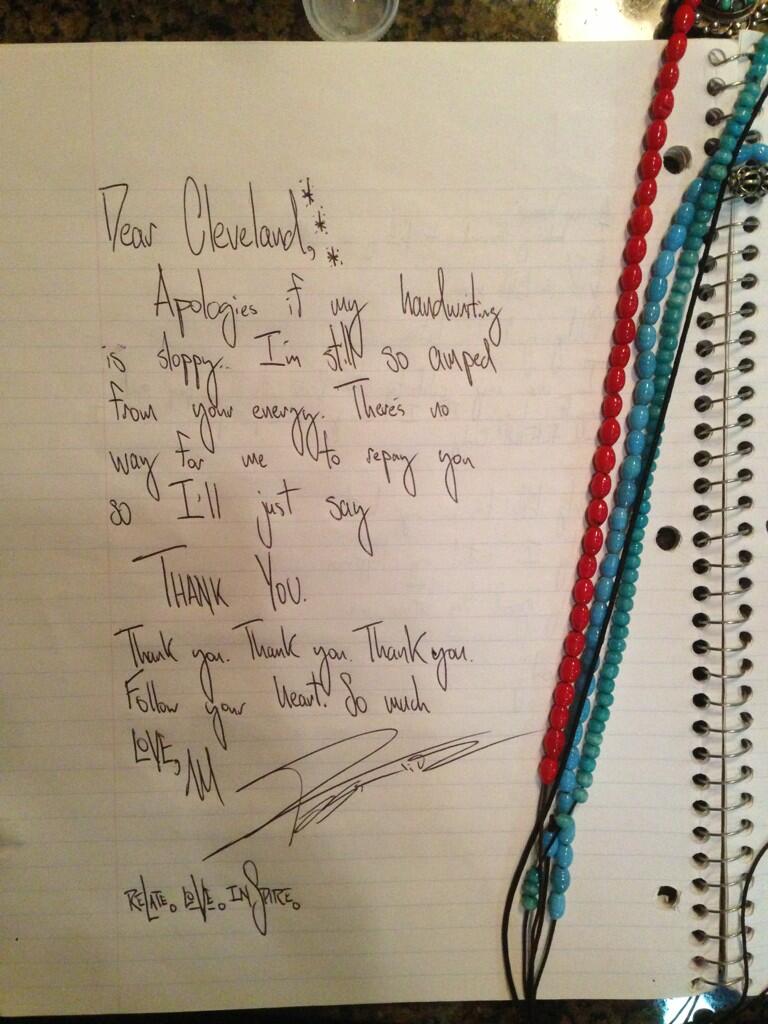 Dear Cleveland,
Apologies if my handwriting
is sloppy.. I'm still so amped
from your energy. There's no
way for me to repay you
so I'll just say
THANK YOU.
Thank you. Thank you. Thank you.
Follow your heart. So much
LOVE, M
RELATE. LOVE. INSPIRE.